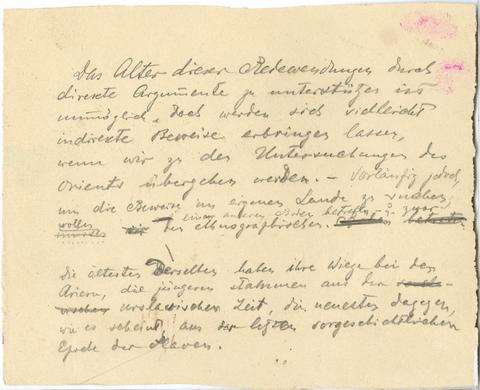 Das Alter dieser Redewendungen durch
direkte Argumente zu unterstützen ist
unmöglich, doch werden sich vielleicht
indirekte Beweise erbringen lassen,
wenn wir zu den Untersuchungen des
Orients übergehen werden. – Vorläufig jedoch,
um die Beweise im eigenen Lande zu suchen,
einen anderen Boden betreten u. zwar
wollen wir den ethnographischen.
Die ältesten Derselben haben ihre Wiege bei den
Ariern, die jüngeren stammen aus der
urslavischen Zeit, die neuesten dagegen,
wie es scheint, aus der letzten vorgeschichtlichen
Epoche der Slaven.